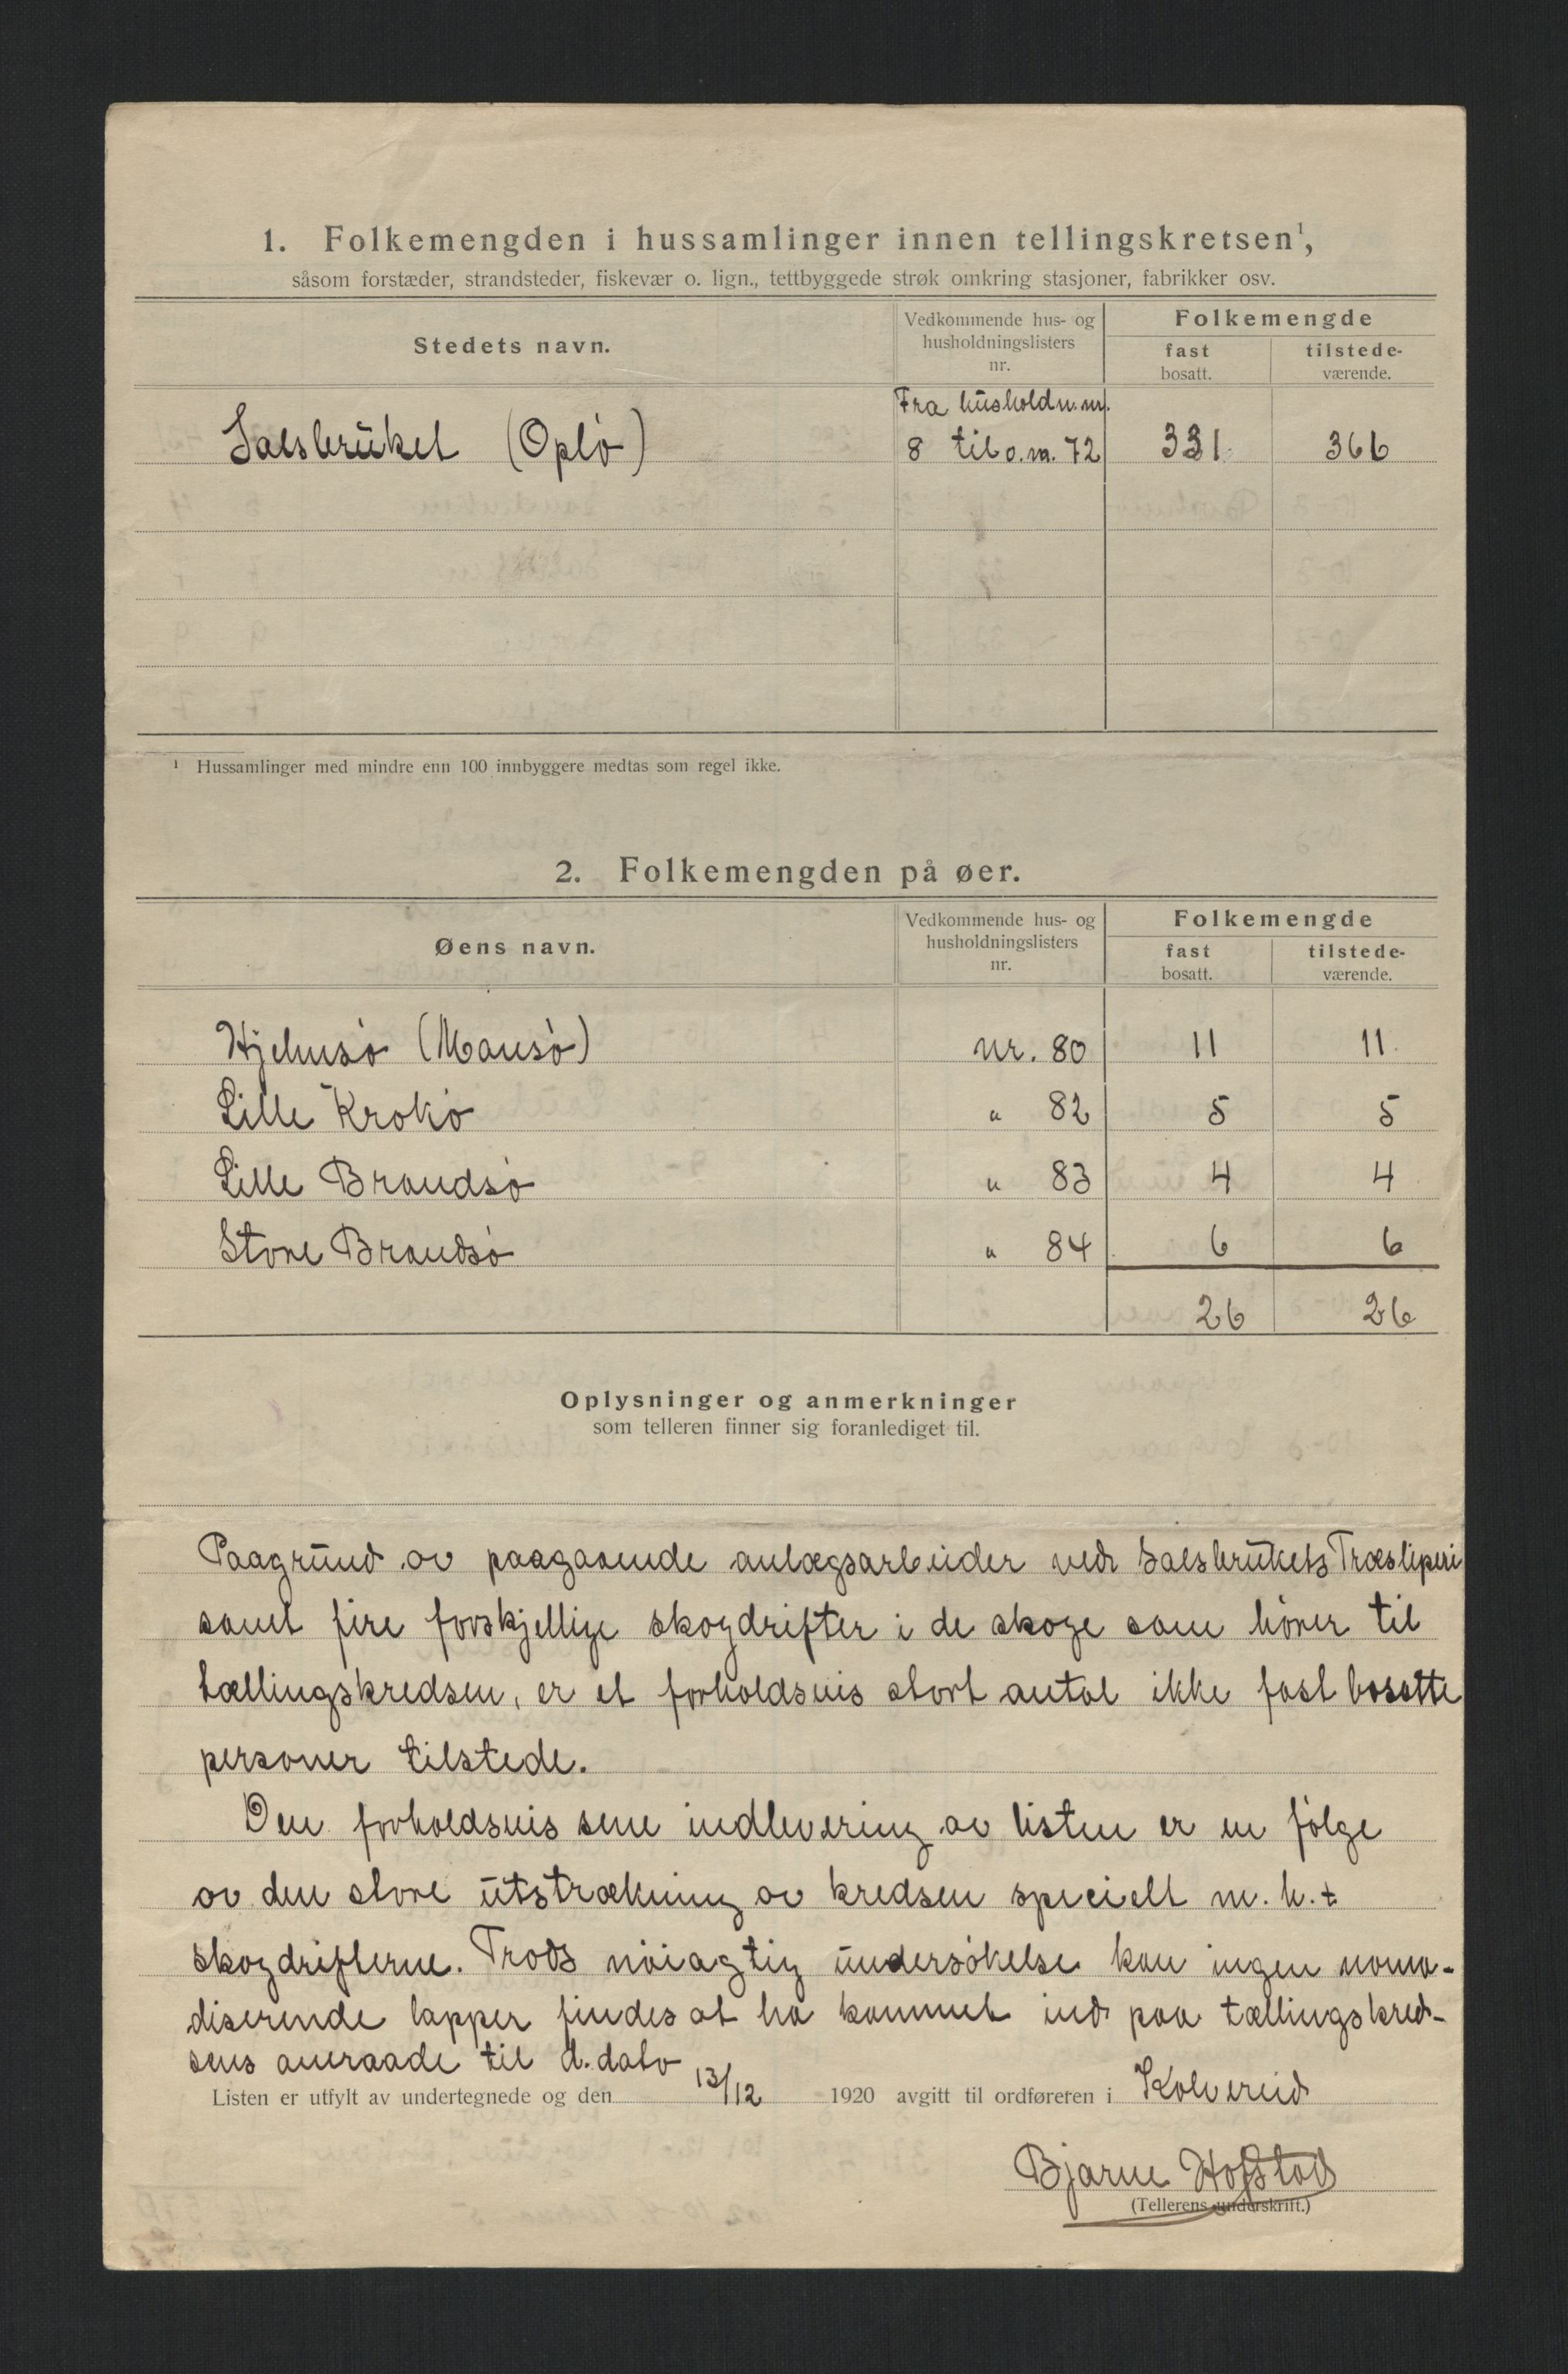 1. Folkemengden i hussamlinger innen tellingskretsen¹,
såsom forstæder, strandsteder, fiskevær o. lign., tettbyggede strøk omkring stasjoner, fabrikker osv.
Stedets navn.
Vedkommende hus- og husholdningslisters nr.
Folkemengde
fast bosatt.
tilstede-værende.
Fra husholdn.nr.
Salsbruket (Oplø) 8 til o.m. 72 331 366
¹ Hussamlinger med mindre enn 100 innbyggere medtas som regel ikke.
2. Folkemengden på øer.
Øens navn.
Vedkommende hus- og husholdningslisters nr.
Folkemengde
fast bosatt.
tilstede-værende.
(Mausø) nr. 80 11 11
Lille Krokø " 82 5 5
Lille Brandsø " 83 4 4
Store Brandsø " 84 6 6
26 26
Oplysninger og anmerkninger
som telleren finner sig foranlediget til.
Paagrund av paagaaende anlægsarbeider ved Salsbrukets Træsliperi
samt fire forskjellige skogdrifter i de skoge som hører til
tællingskredsen, er et forholdsvis stort antal ikke fast bosatte
personer tilstede.
Den forholdsvis sene indlevering av listen er en følge
av den store utstrækning av kredsen specielt m.h.t
skogdrifterne. Trods nøiagtig undersøkelse kan ingen noma-
diserende lapper findes at ha kommet ind paa tællingskred-
sens omraade til d.dato
Listen er utfylt av undertegnede og den 13/12 1920 avgitt til ordføreren i Kolvereid
Bjarne Hofstad
(Tellerens underskrift.)